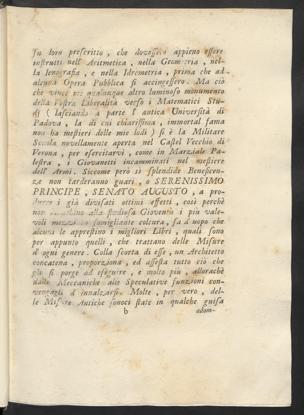 fu loro prescritto, che dovessero appieno essere
instrutti nell' Aritmetica, nella Geometria, nel-
la Icnografia, e nella Idrometria, prima che ad
alcuna Opera Pubblica si accingessero. Ma ciò
che vince poi qualunque altro luminoso monumento
della Vostra Liberalità verso i Matematici Stu-
dj (lasciando a parte l' antica Università di
Padova, la di cui chiarissima, immortal fama
non ha mestieri delle mie lodi) si è la Militare
Scuola novellamente aperta nel Castel Vecchio di
Verona, per esercitarvi, come in Marziale Pa-
lestra, i Giovanetti incamminati nel mestiere
dell' Armi. Siccome però sì splendide Beneficen-
ze non tarderanno guari, o SERENISSIMO
PRINCIPE, SENATO AUGUSTO, a pro-
durre i già divisati ottimi effetti, così perchè
non alla studiosa Gioventù i più va-
levoli mezzi somigliante coltura, fa d'uopo che
alcuni le apprestino i migliori Libri, quali sono
per appunto quelli, che trattano delle Misure
d' ogni genere. Colla scorta di esse, un Architetto
concatena, proporziona, ed assesta tutto ciò che
gli si porge ad eseguire, e molto più, allorachè
dalle Meccaniche alle Speculative funzioni con-
vengagli d' innalzarsi. Molte, per vero, del-
le Misure Antiche sonoci state in qualche guisa
b adom-